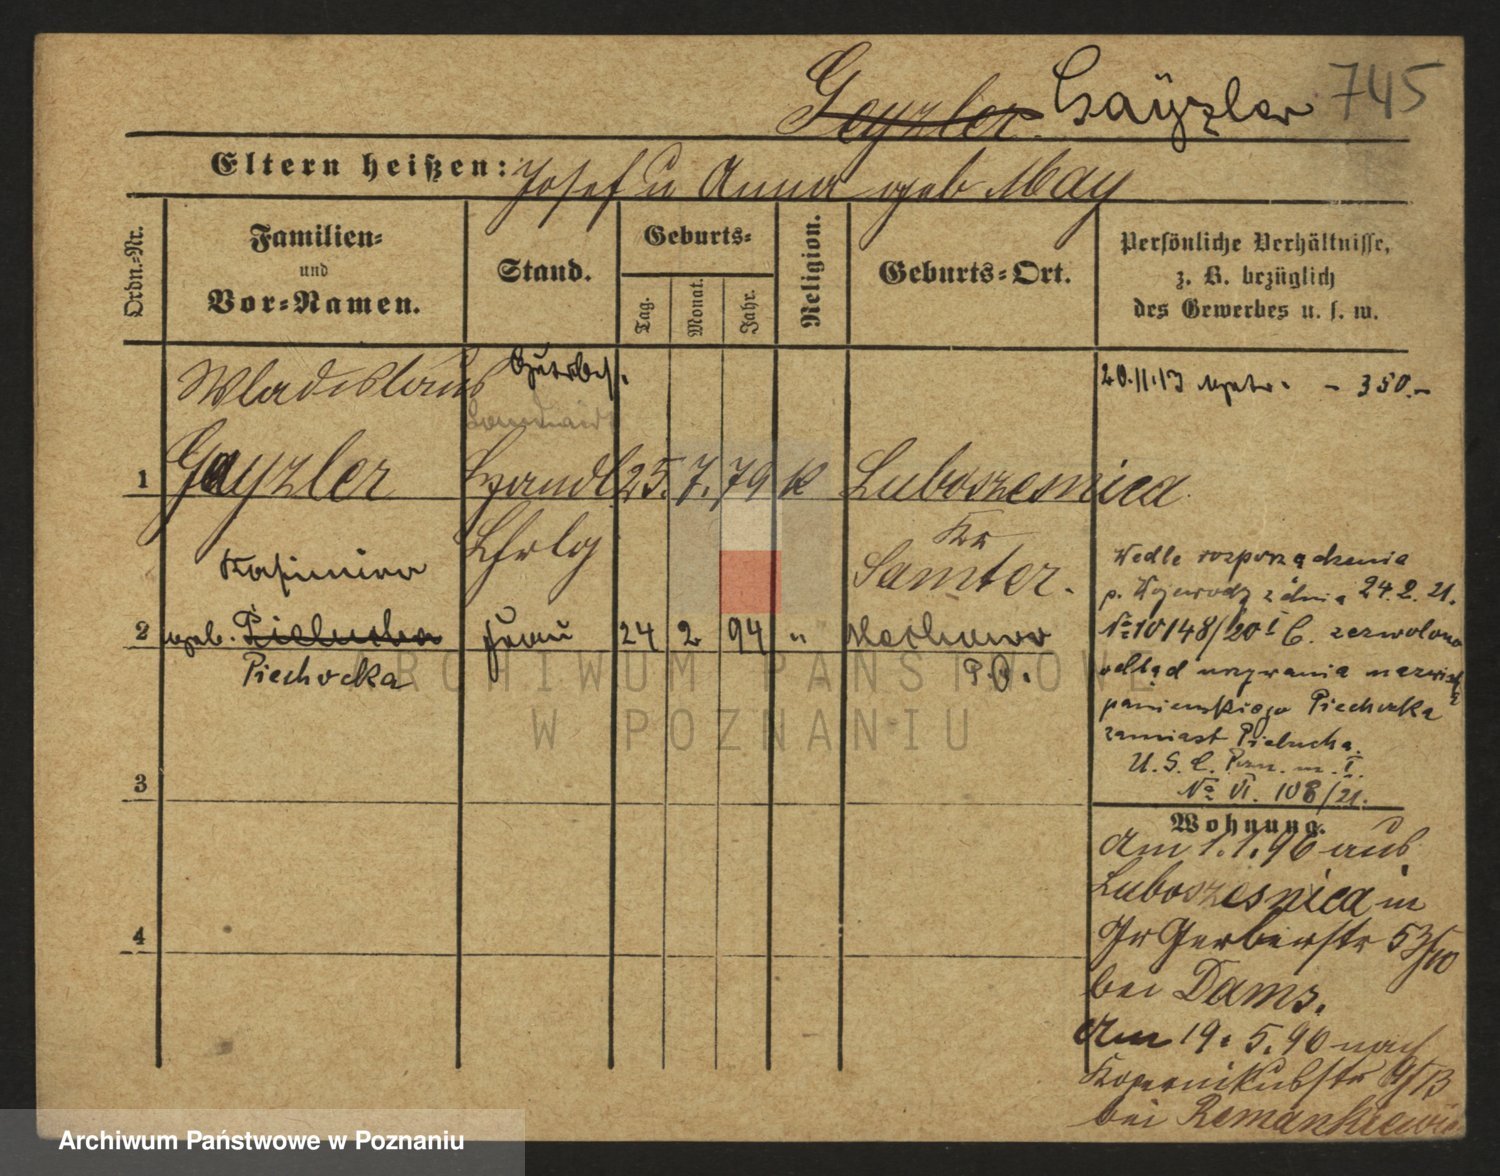 Geyzler. Gayzler 745
Eltern heißen: Josef u Anna geb May
Ordn.-Nr.
Familien-
und
Vor-Namen.
Stand.
Geburts-
Tag.
Monat.
Jahr.
Religion.
Geburts-Ort.
Persönliche Verhältnisse,
z. B. bezüglich
des Gewerbes u. s. w.
Wladislaus
Gutsbes. 20.11.13 - 350.-
1 Gayzler Handl 25. 7. 79 K Luboszesnica
Lhrlg Kr
Samter.
Kasimira
2 geb. Pielucha Frau 24 2 94 "
Piechocka P. O.
3
4
Wedle rozporządzenia
p. Wojewody z dnia 24.2.21.
№ 10148/20 I C. zezwolono
odtąd używania nazwiska
panieńskiego Piechocka
zamiast Pielucha.
U. S. C. Pozn. m. I.
№ VI. 108/21.
Wohnung.
Am 1.1.96 aus
Luboszesnica in
Gr Gerberstr 53/10
bei Dams.
Am 19. 5. 96 nach
Kopernikusstr 9/13
bei Romankiewicz
ARCHIWUM PAŃSTWOWE
W POZNANIU
Archiwum Państwowe w Poznaniu